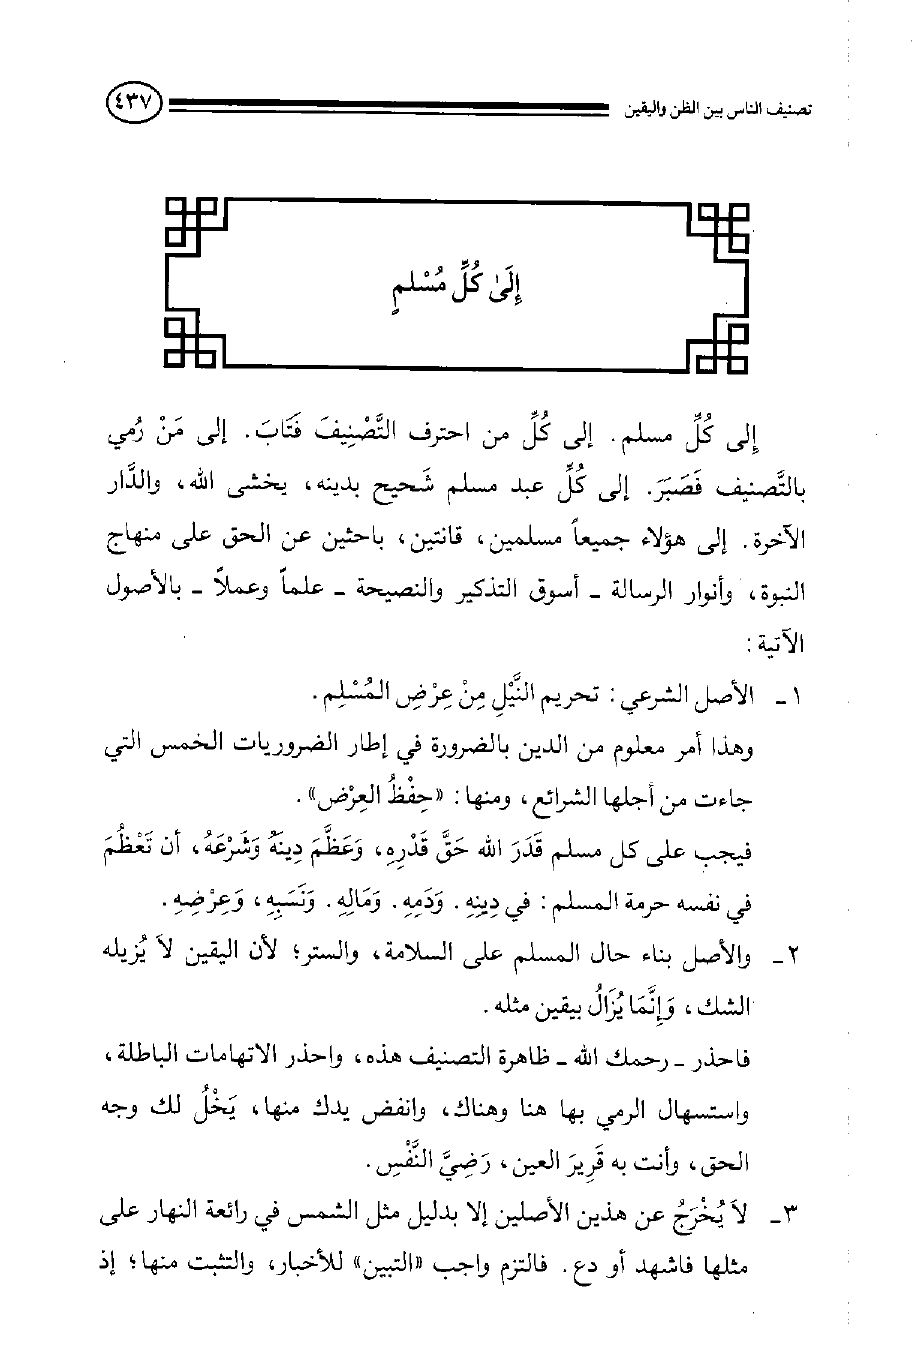 تصنيف الناس بين الظن واليقين ٤٣٧
إِلَىٰ كُلِّ مُسْلمٍ
إِلى كُلِّ مسلم. إلى كُلِّ من احترف التَّصْنِيفَ فَتَابَ. إلى مَنْ رُمي
بالتَّصنيف فَصَبَرَ. إلى كُلِّ عبد مسلم شَحيح بدينه، يخشى الله، والدَّار
الآخرة. إلى هؤلاء جميعاً مسلمين، قانتين، باحثين عن الحق على منهاج
النبوة، وأنوار الرسالة ـ أسوق التذكير والنصيحة ـ علماً وعملاً ـ بالأصول
الآتية:
١ ـ الأصل الشرعي: تحريم النَّيْلِ مِنْ عِرْضِ المُسْلِم.
وهذا أمر معلوم من الدين بالضرورة في إطار الضروريات الخمس التي
جاءت من أجلها الشرائع، ومنها: «حِفْظُ العِرْض».
فيجب على كل مسلم قَدَرَ الله حَقَّ قَدْرِهِ، وَعَظَّمَ دِينَهُ وَشَرْعَهُ، أن تَعْظُمَ
في نفسه حرمة المسلم: في دِينِهِ. وَدَمِهِ. وَمَالِهِ. وَنَسَبِهِ، وَعِرْضِهِ.
٢ ـ والأصل بناء حال المسلم على السلامة، والستر؛ لأن اليقين لاَ يُزيله
الشك، وَإِنَّمَا يُزَالُ بيقين مثله.
فاحذر ـ رحمك الله ـ ظاهرة التصنيف هذه، واحذر الاتهامات الباطلة،
واستسهال الرمي بها هنا وهناك، وانفض يدك منها، يَخْلُ لك وجه
الحق، وأنت به قَرِيرَ العين، رَضِيَّ النَّفْسِ.
٣ ـ لاَ يُخْرَجُ عن هذين الأصلين إلا بدليل مثل الشمس في رائعة النهار على
مثلها فاشهد أو دع. فالتزم واجب «التبين» للأخبار، والتثبت منها؛ إذ